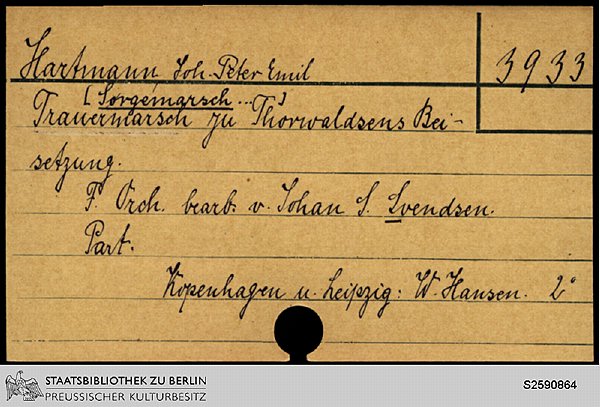 Hartmann, Joh. Peter Emil
3933
[Sorgemarsch ...]
Trauermarsch zu Thorwaldsens Bei-
setzung.
F. Orch. bearb. v. Johan S. Svendsen.
Part.
Kopenhagen u. Leipzig: W. Hansen. 2°
STAATSBIBLIOTHEK ZU BERLIN
PREUSSISCHER KULTURBESITZ
S2590864